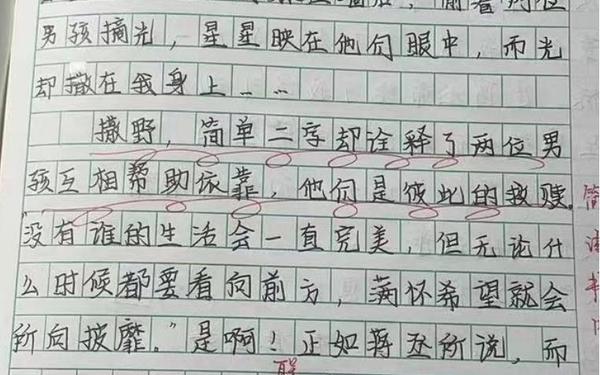 男孩摘光，星星映在他们眼中，而光
却撒在我身上……
撒野，简单二字却诠释了两位男
孩互相帮助依靠，他们是彼此的救赎。
"没有谁的生活会一直完美，但无论什
么时候都要看向前方，满怀希望就会
所向披靡。"是啊！正如蒋丞所说，而